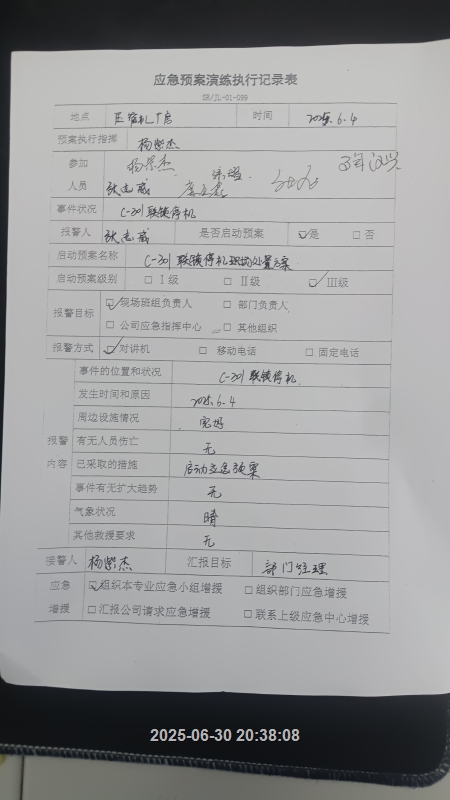 应急预案演练执行记录表
SH/JL-01-099
地点 压缩机厂房 时间 2025.6.4
预案执行指挥 杨紫杰
参加 杨紫杰
人员 张志威
事件状况 C-301联锁停机
报警人 张志威 是否启动预案 ☑是 □否
启动预案名称 C-301联锁停机现场处置方案
启动预案级别 □Ⅰ级 □Ⅱ级 ☑Ⅲ级
报警目标 ☑现场班组负责人 □部门负责人
□公司应急指挥中心 □其他组织
报警方式 ☑对讲机 □移动电话 □固定电话
事件的位置和状况 C-301联锁停机
发生时间和原因 2025.6.4
周边设施情况 完好
报警 有无人员伤亡 无
内容 已采取的措施 启动应急预案
事件有无扩大趋势 无
气象状况 晴
其他救援要求 无
接警人 杨紫杰 汇报目标 部门经理
应急 ☑组织本专业应急小组增援 □组织部门应急增援
增援 □汇报公司请求应急增援 □联系上级应急中心增援
2025-06-30 20:38:08